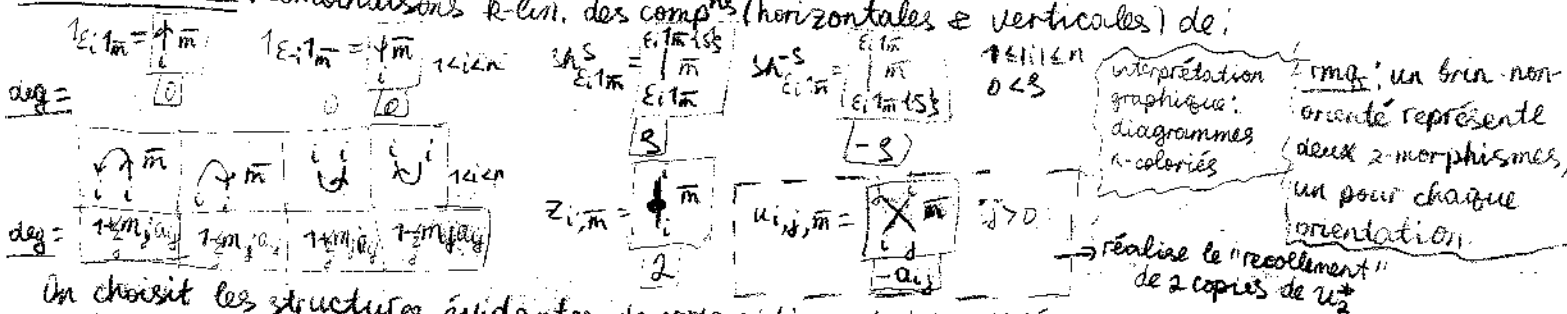 combinaisons k-lin. des compᵒⁿˢ (horizontales & verticales) de:
1_{ε_i} 1_{m̄} = ↑ m̄ 1_{ε_{-i}} 1_{m̄} = m̄ 1≤i≤n sh^s_{ε_i 1_{m̄}} = ε_i 1_{m̄}{s} m̄ ε_i 1_{m̄} sh^{-s}_{ε_i 1_{m̄}} = ε_i 1_{m̄} m̄ ε_i 1_{m̄}{s} 1≤|i|≤n 0<s
deg = 0 0 s -s
interprétation graphique: diagrammes n-coloriés
rmq: un brin non-
orienté représente
deux 2-morphismes,
un pour chaque
orientation.
m̄ m̄ i i i i 1≤i≤n z_{i,m̄} = m̄ i u_{i,j,m̄} = m̄ i j j>0
deg = 2 -a_{ij}
→ réalise le "recollement"
de 2 copies de
On choisit les structures évidentes de